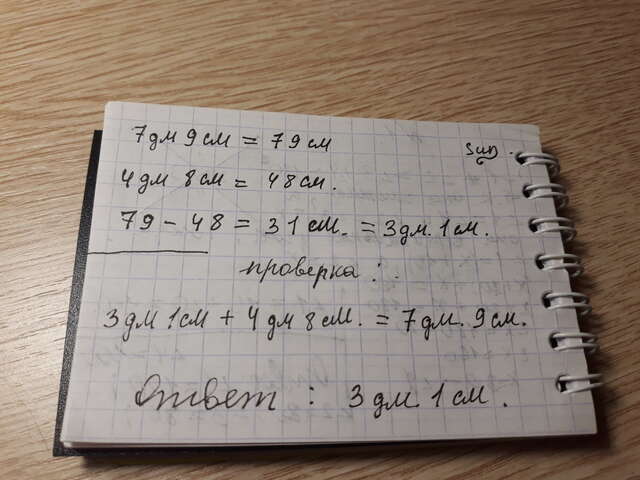 7дм 9см = 79см
sun.
4дм 8см = 48см.
79 - 48 = 31 см. = 3дм. 1см.
проверка : .
3дм 1см + 4дм 8см. = 7дм. 9см.
Ответ : 3 дм. 1 см.